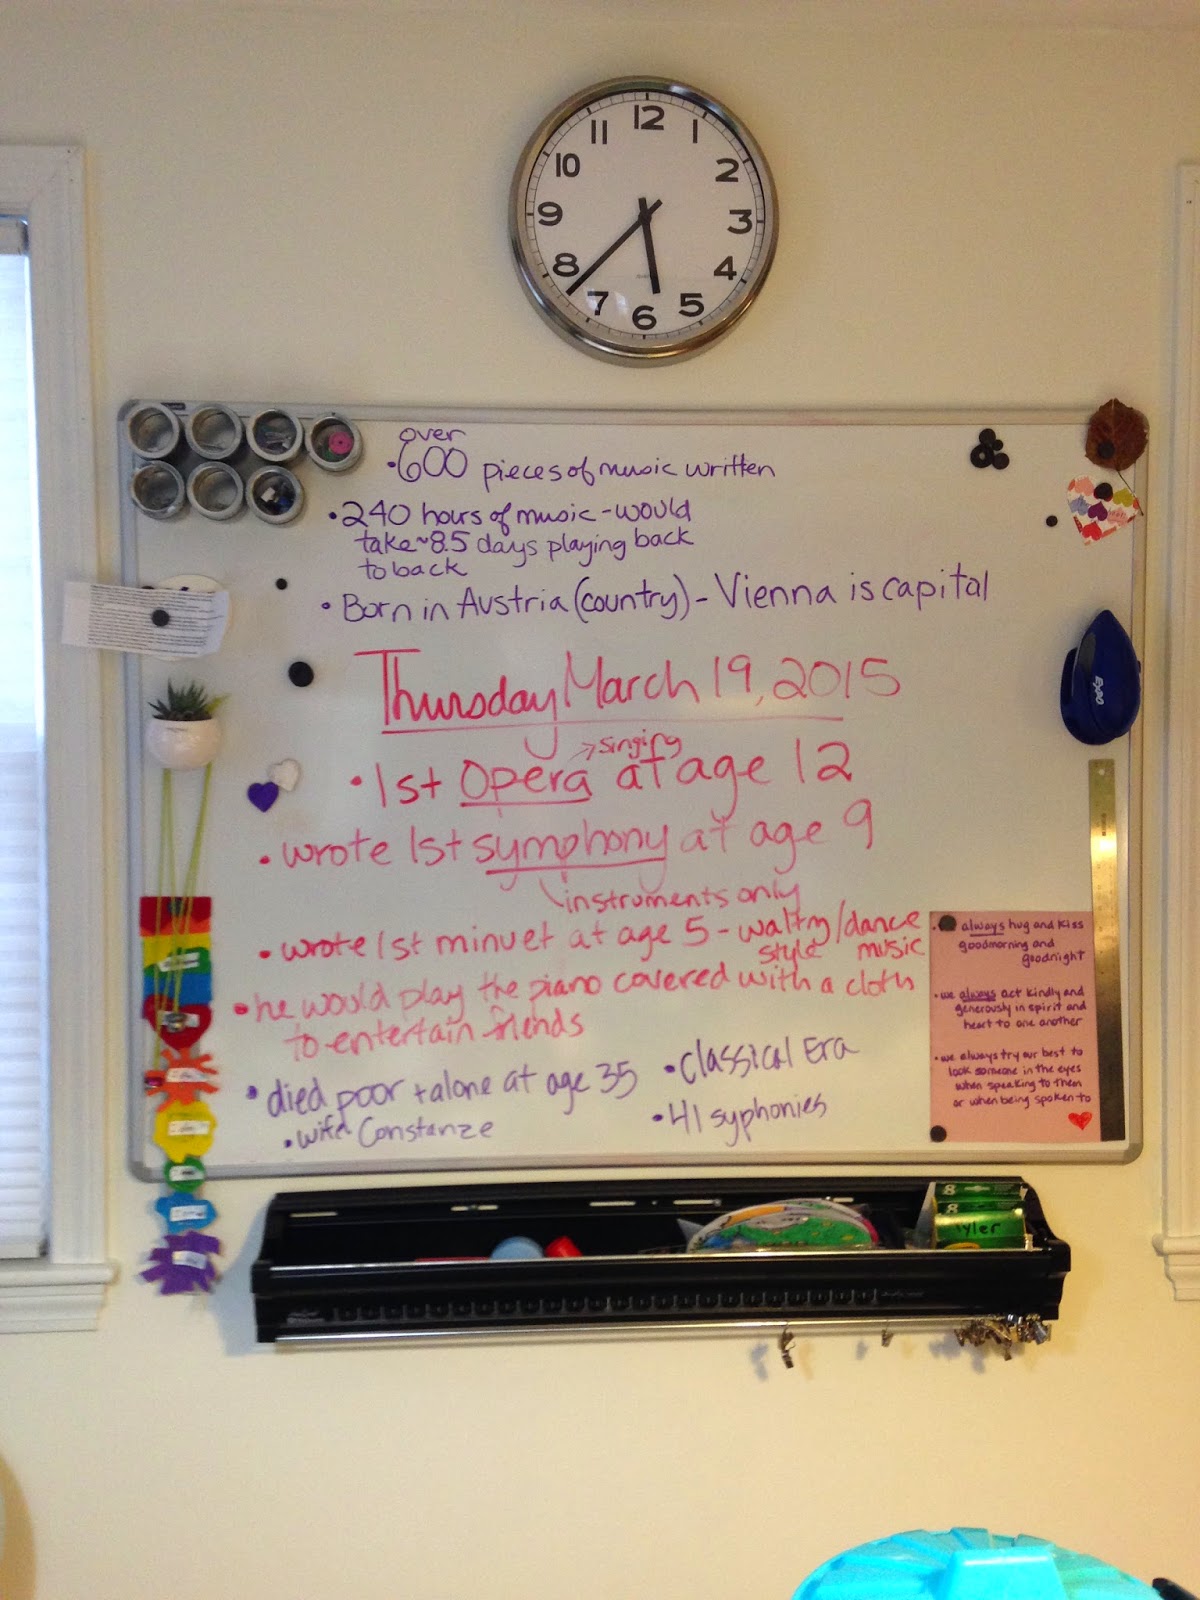 12
11 1
10 2
9 3
8 4
7 5
6
over
• 600 pieces of music written
• 240 hours of music - would
take ~ 8.5 days playing back
to back
• Born in Austria (country) - Vienna is capital
Thursday March 19, 2015
→ singing
• 1st Opera at age 12
• wrote 1st symphony at age 9
instruments only
• wrote 1st minuet at age 5 - waltzy/dance
style music
• he would play the piano covered with a cloth
to entertain friends
• died poor + alone at age 35
• wife Constanze
• Classical Era
• 41 syphonies
EXPO
• always hug and kiss
goodmorning and
goodnight
• we always act kindly and
generously in spirit and
heart to one another
• we always try our best to
look someone in the eyes
when speaking to them
or when being spoken to
8
8
Tyler